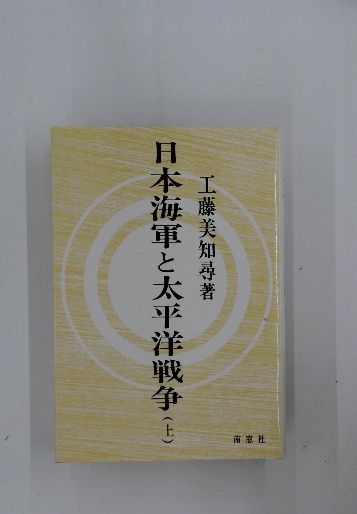 日本海軍と太平洋戦争(上)
工藤美知尋著
南窓社